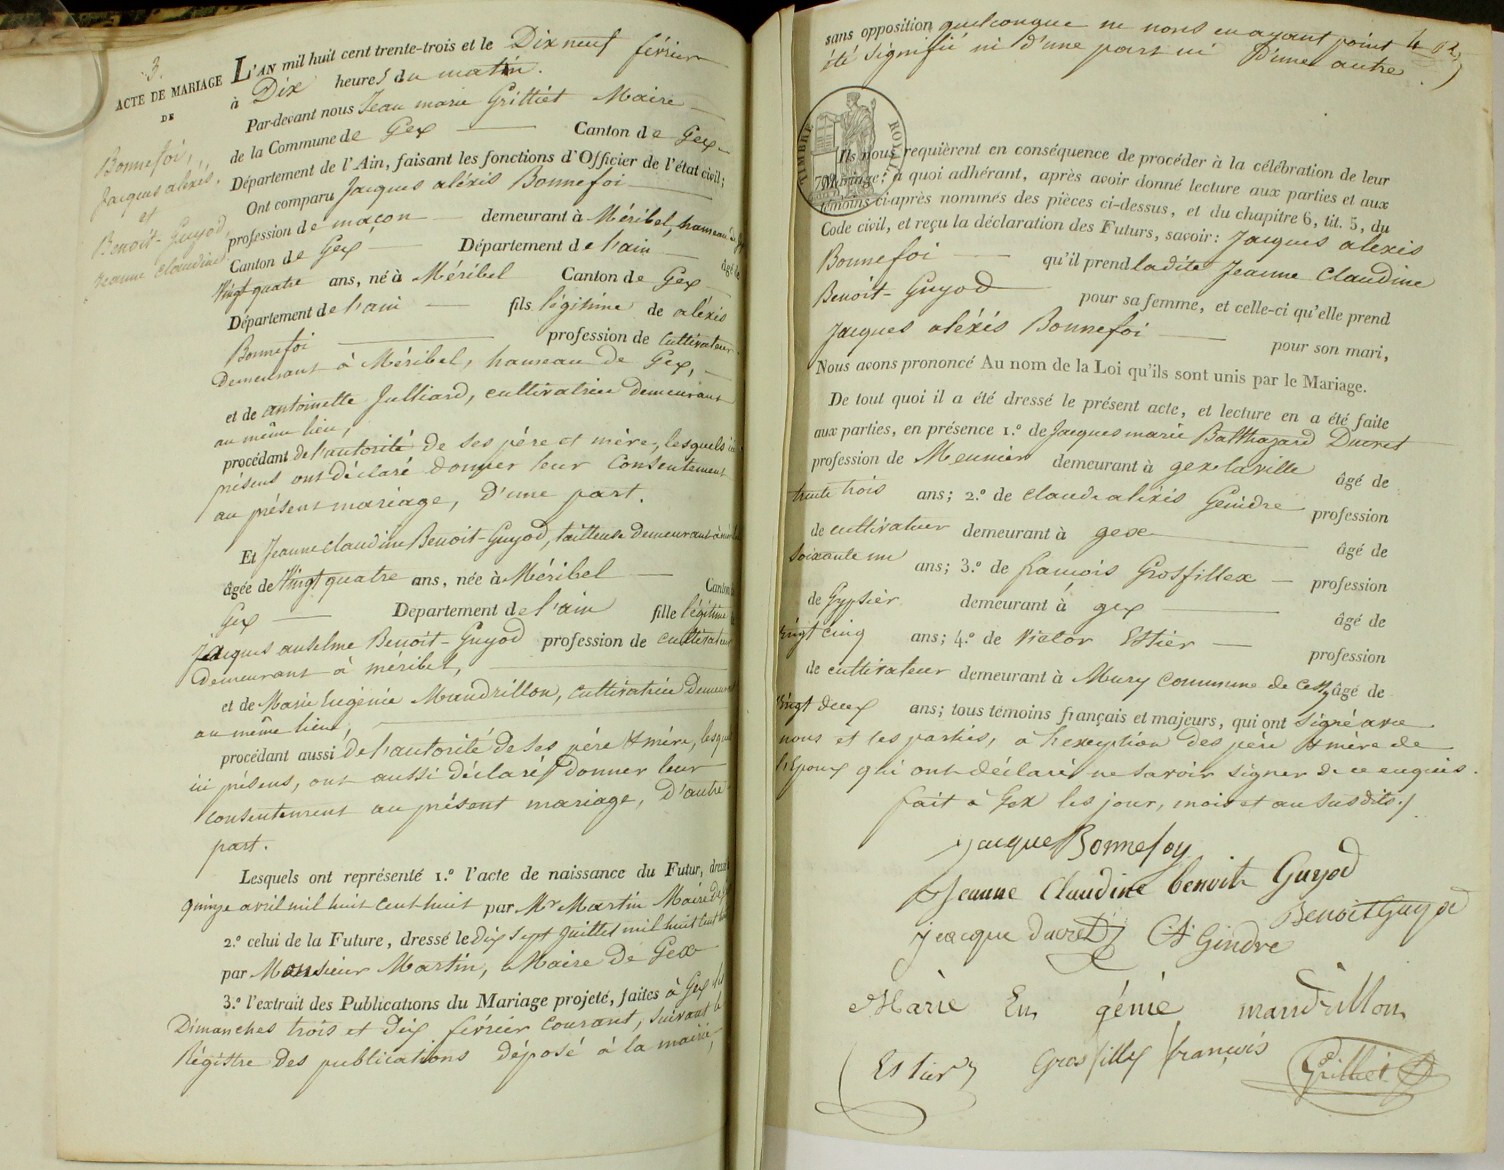 3.
ACTE DE MARIAGE
DE
Bonnefoi,
Jacques alexis.
et
Benoit-Guyod,
jeanne claudine.
L'AN mil huit cent trente-trois et le Dix neuf février
à Dix heures du matin.
Par-devant nous Jean marie Grilliet Maire
de la Commune de Gex Canton de Gex
Département de l'Ain, faisant les fonctions d'Officier de l'état civil;
Ont comparu Jacques aléxis Bonnefoi
profession de maçon demeurant à Méribel, hameau de
Canton de Gex Département de l'ain âgé de
Vingt quatre ans, né à Méribel Canton de Gex
Département de l'ain fils légitime de aléxis
Bonnefoi profession de cultivateur
Demeurant à Méribel, hameau de Gex,
et de antoinette Julliard, cultivatrice demeurant
au même lieu,
procédant de l'autorité de ses père et mère, lesquels ici
présens ont déclaré donner leur consentement
au présent mariage, d'une part.
Et Jeanne claudine Benoit-Guyod, tailleuse demeurant à
âgée de Vingt quatre ans, née à Méribel Canton de
Gex Département de l'ain fille légitime de
Jacques anselme Benoit-Guyod profession de cultivateur
demeurant à méribel,
et de Marie Eugénie Mandrillon, cultivatrice demeurant
au même lieu,
procédant aussi de l'autorité de ses père et mère, lesquels
ici présens, ont aussi déclaré donner leur
consentement au présent mariage, d'autre
part.
Lesquels ont représenté 1.º l'acte de naissance du Futur, dressé
quinze avril mil huit cent huit par Mr Martin Maire de
2.º celui de la Future, dressé le dix sept Juillet mil huit cent
par Monsieur Martin, Maire de Gex
3.º l'extrait des Publications du Mariage projeté, faites à Gex les
Dimanches trois et dix février courant, suivant le
Régistre des publications déposé à la mairie,
sans opposition quelconque ne nous en ayant point
été signifié ni d'une part ni d'une autre
TIMBRE ROYAL
Ils nous requièrent en conséquence de procéder à la célébration de leur
Mariage; à quoi adhérant, après avoir donné lecture aux parties et aux
témoins ci-après nommés des pièces ci-dessus, et du chapitre 6, tit. 5, du
Code civil, et reçu la déclaration des Futurs, savoir: Jacques alexis
Bonnefoi qu'il prend ladite Jeanne Claudine
Benoit-Guyod pour sa femme, et celle-ci qu'elle prend
Jacques aléxis Bonnefoi pour son mari,
Nous avons prononcé Au nom de la Loi qu'ils sont unis par le Mariage.
De tout quoi il a été dressé le présent acte, et lecture en a été faite
aux parties, en présence 1.º de Jacques marie Balthazard Ducret
profession de Meunier demeurant à gex la ville âgé de
trente trois ans; 2.º de claude aléxis Geindre profession
de cultivateur demeurant à gex âgé de
soixante un ans; 3.º de francois Grosfillex profession
de Gypsier demeurant à gex âgé de
vingt cinq ans; 4.º de Victor Estier profession
de cultivateur demeurant à Mury commune de Cessy âgé de
vingt deux ans; tous témoins français et majeurs, qui ont signé avec
nous et les parties, à l'exception des père et mère de
l'Epoux qui ont déclaré ne savoir signer de ce enquis.
fait à Gex les jour, mois et an susdits.
jacque Bonnefoy
Jeanne Claudine benoit Guyod
Benoit Guyod
jacque ducret CA Gindre
Marie Eu génie mandrillon
Estier Grosfillex françois
Grilliet